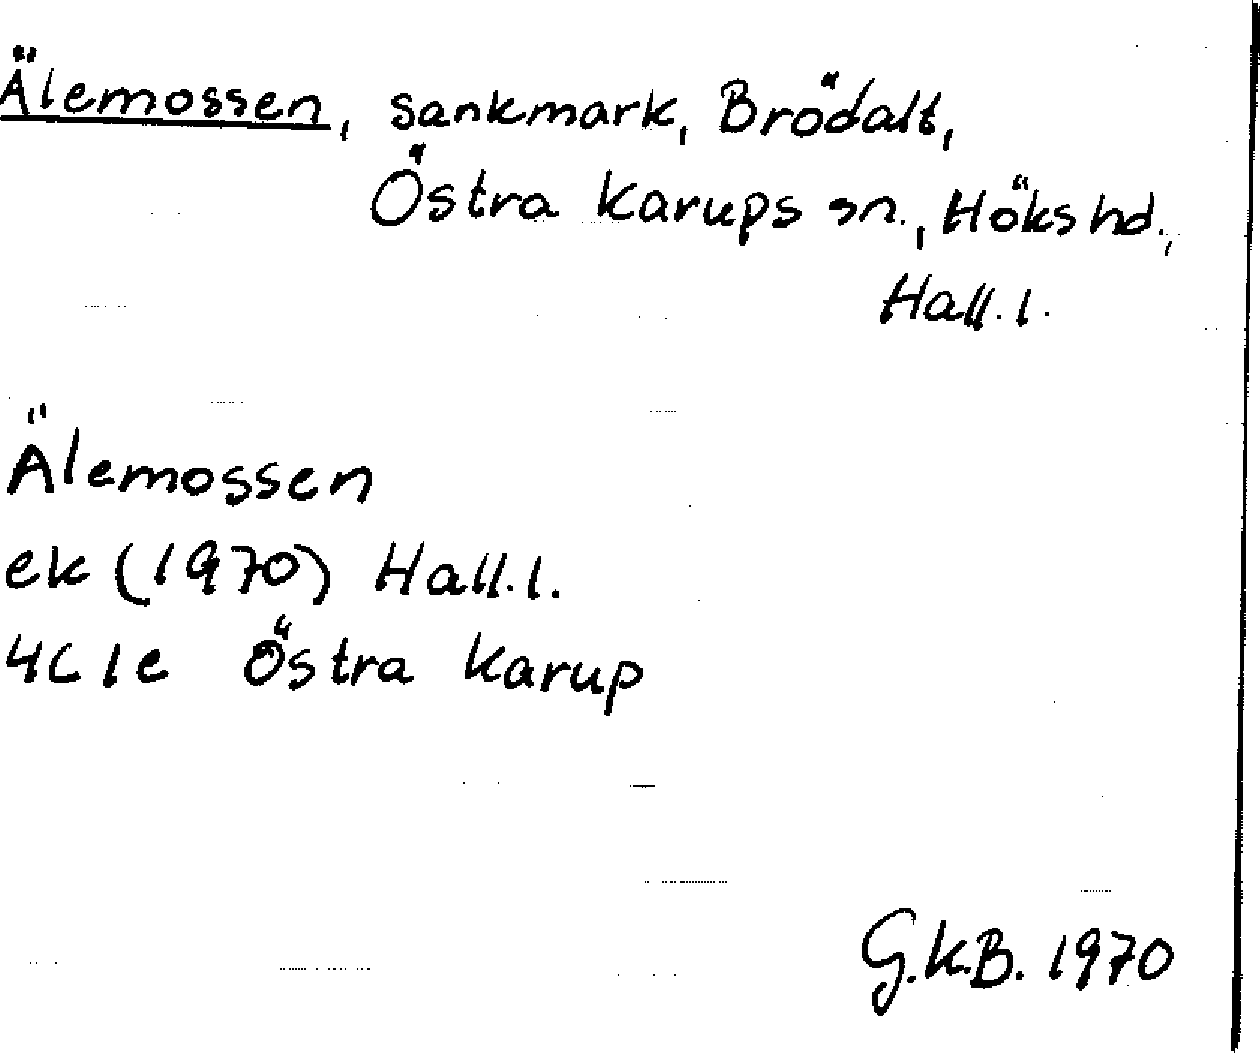 Älemossen, sankmark, Brödalt,
Östra Karups sn., Höks hd.,
Hall. l.
Älemossen
ek (1970) Hall. l.
4C 1e Östra Karup
G.K.B. 1970